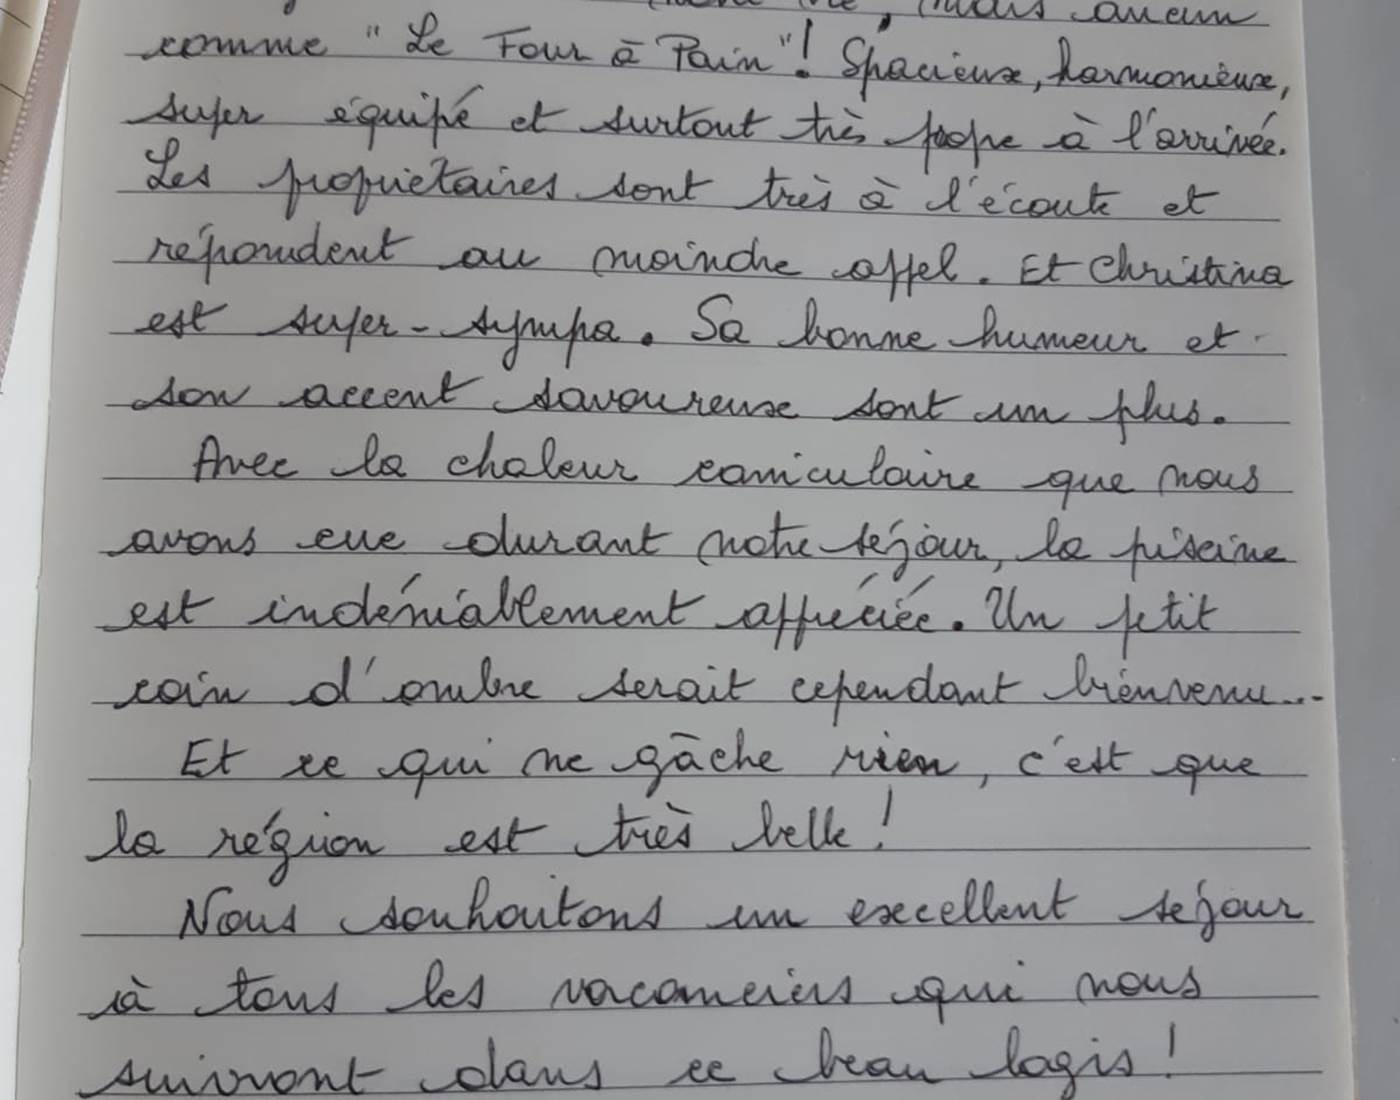 mais aucun
comme "Le Four à Pain"! Spacieux, harmonieux,
super équipé et surtout très propre à l'arrivée.
Les propriétaires sont très à l'écoute et
répondent au moindre appel. Et Christina
est super-sympa. Sa bonne humeur et
son accent savoureuse sont un plus.
Avec la chaleur caniculaire que nous
avons eue durant notre séjour, la piscine
est indéniablement appréciée. Un petit
coin d'ombre serait cependant bienvenu...
Et ce qui ne gâche rien, c'est que
la région est très belle!
Nous souhaitons un excellent séjour
à tous les vacanciers qui nous
suivront dans ce beau logis!